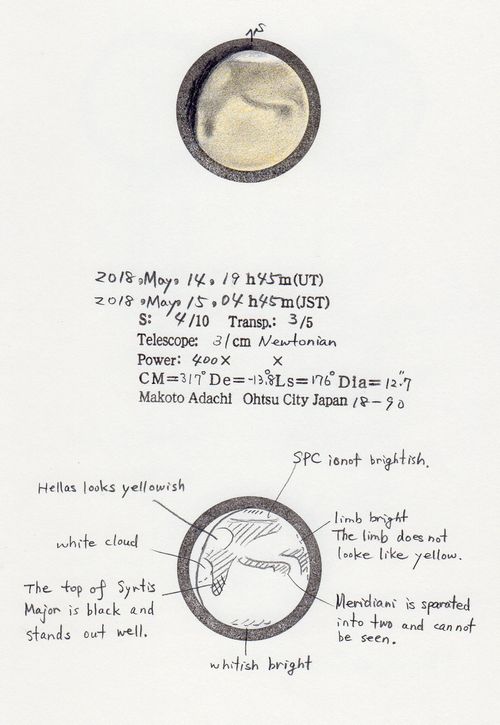 S
2018, May, 14, 19 h45m(UT)
2018, May, 15, 04 h45m(JST)
S: 4/10 Transp.: 3/5
Telescope: 31cm Newtonian
Power: 400× ×
CM=317° De=-13.8° Ls=176° Dia=12.″7
Makoto Adachi Ohtsu City Japan 18-90
SPC is not brightish.
Hellas looks yellowish
limb bright
The limb does not
looke like yellow.
white cloud
The top of Syrtis
Major is black and
stands out well.
Meridiani is sparated
into two and cannot
be seen.
whitish bright